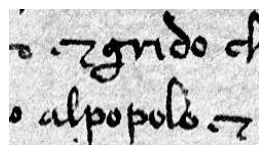 ⁊ grido ch
o alpopolo . ⁊